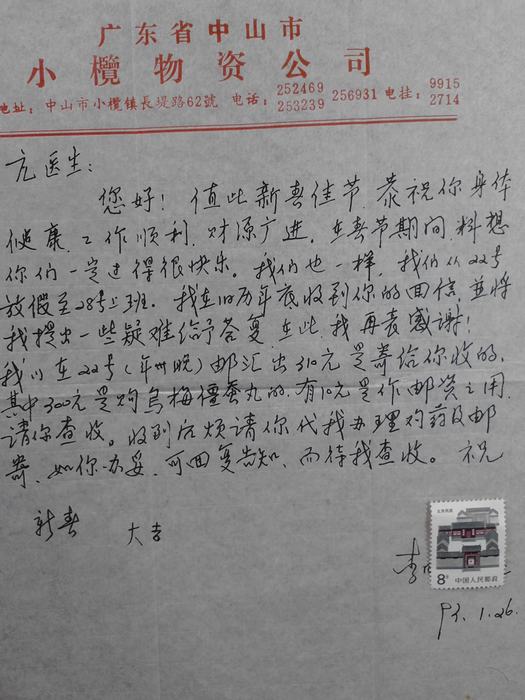 广东省中山市
小欖物资公司
地址：中山市小欖镇長堤路62號 电话：252469 253239 256931 电挂：9915 2714
亢医生：
您好！值此新春佳节，恭祝你身体
健康，工作顺利，财源广进。在春节期间料想
你们一定过得很快乐。我们也一样，我们从22号
放假至28号上班。我在旧历年底收到你的回信，並将
我提出一些疑难给予答复在此，我再表感谢！
我们在22号（年卅晚）邮汇出310元是寄给你收的，
其中300元是购乌梅僵蚕丸的，有10元是作邮资之用，
请你查收。收到后烦请你代我办理购药及邮
寄，如你办妥，可回复告知，而待我查收。祝
新春
大吉
李
93.1.26.
北京民居
8分 中国人民邮政